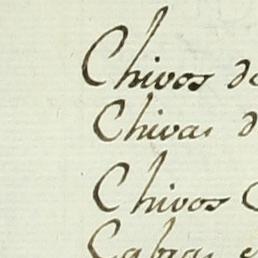 Chivos de
Chivas d
Chivos C
Cabras